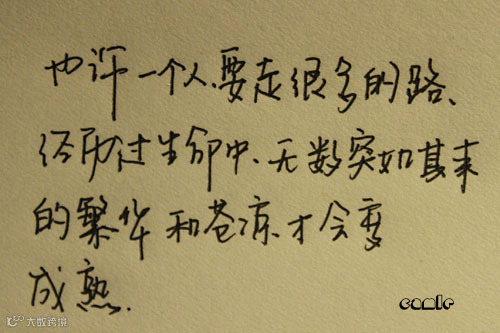 也许一个人、要走很多的路、
经历过生命中、无数突如其来
的繁华和苍凉.才会变
成熟.
comic
大数跨境